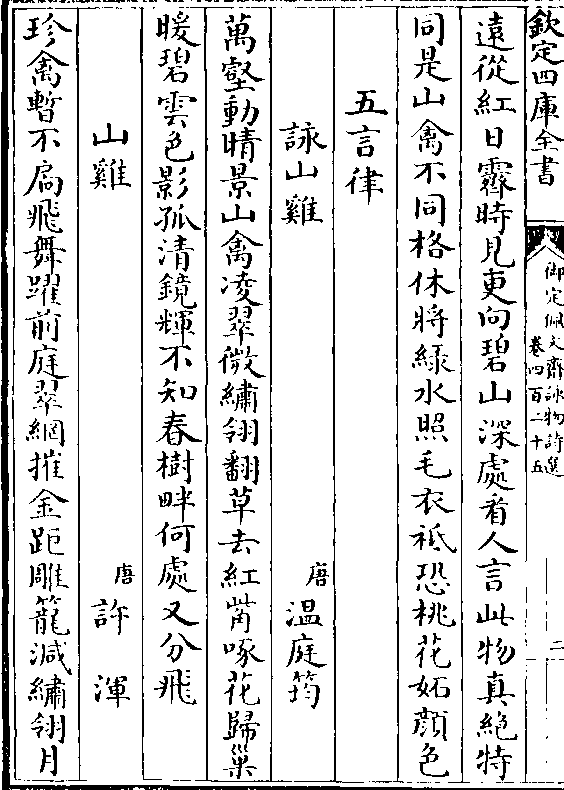 欽定四庫全書
御定佩文齋詠物詩選
卷四百二十五
二
遠從紅日霽時見更向碧山深處看人言此物真絶特
同是山禽不同格休將緑水照毛衣袛恐桃花妬顔色
五言律
詠山雞 唐 温庭筠
萬壑動晴景山禽凌翠微繡翎翻草去紅觜啄花歸巢
暖碧雲色影孤清鏡輝不知春樹畔何處又分飛
山雞 唐 許渾
珍禽暫不扃飛舞躍前庭翠網摧金距雕籠減繡翎月